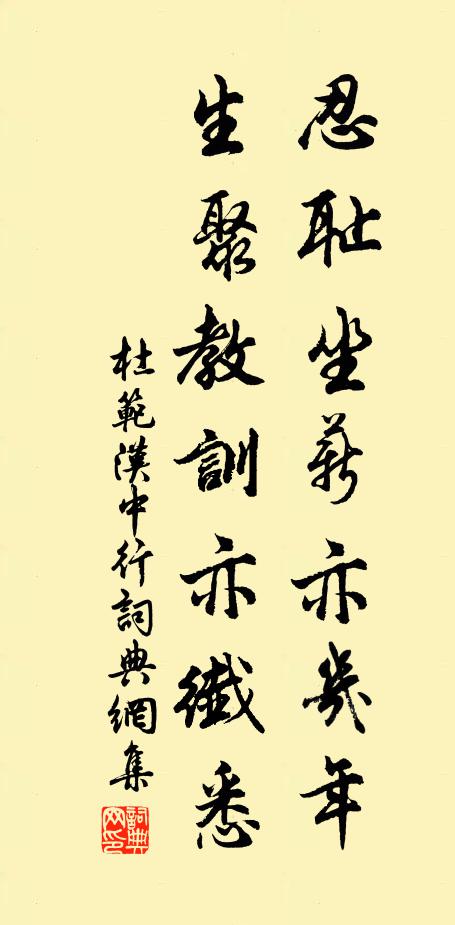 忍耻坐薪亦幾年
生聚教訓亦纖悉
杜範漢中行詞典網集
詞典网印